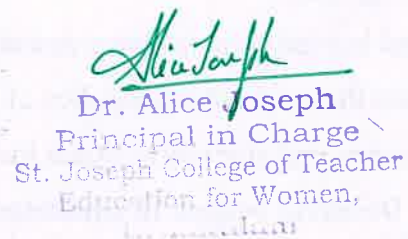 Alice Joseph
Dr. Alice Joseph
Principal in Charge
St. Joseph College of Teacher
Education for Women,